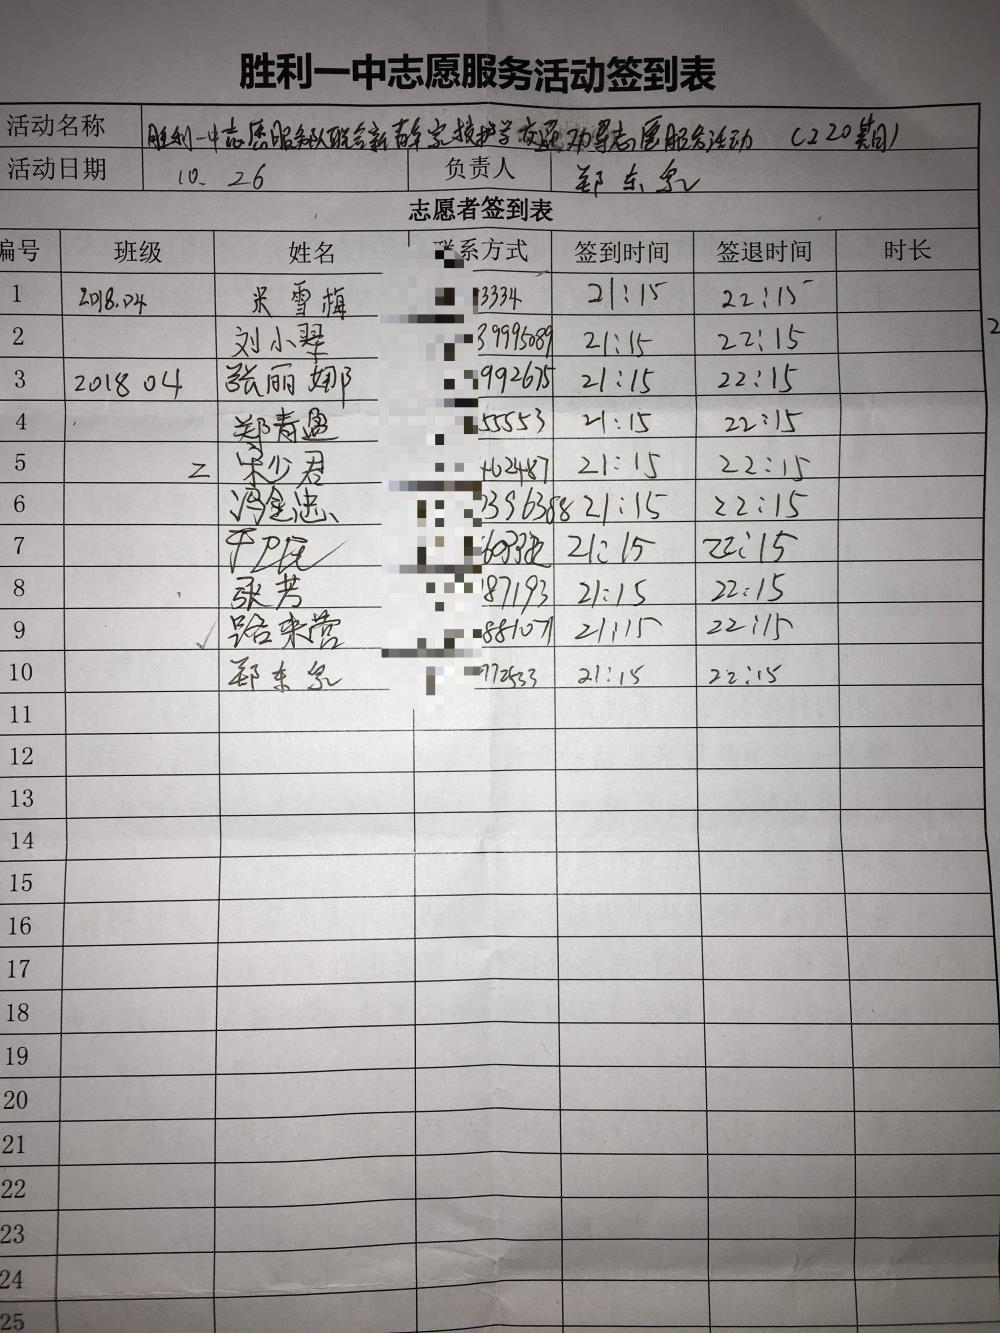 胜利一中志愿服务活动签到表
活动名称 胜利一中志愿服务队联合新青年家护学交通劝导志愿服务活动
活动日期 10.26 负责人 郑东泉
志愿者签到表
编号 班级 姓名 联系方式 签到时间 签退时间 时长
1 2018.04 米雪梅 3334 21:15 22:15
2 刘小翠 39995089 21:15 22:15
3 2018 04 张丽娜 992675 21:15 22:15
4 郑青盈 55553 21:15 22:15
5 宋少君 462487 21:15 22:15
6 冯金忠 396388 21:15 22:15
7 21:15 22:15
8 张芳 87193 21:15 22:15
9 路来营 881071 21:15 22:15
10 郑东泉 772533 21:15 22:15
11
12
13
14
15
16
17
18
19
20
21
22
23
24
25